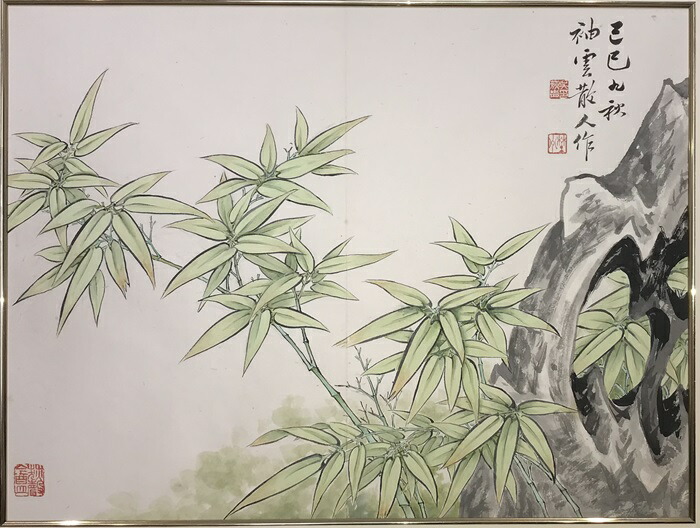 己巳九秋
袖雲散人作